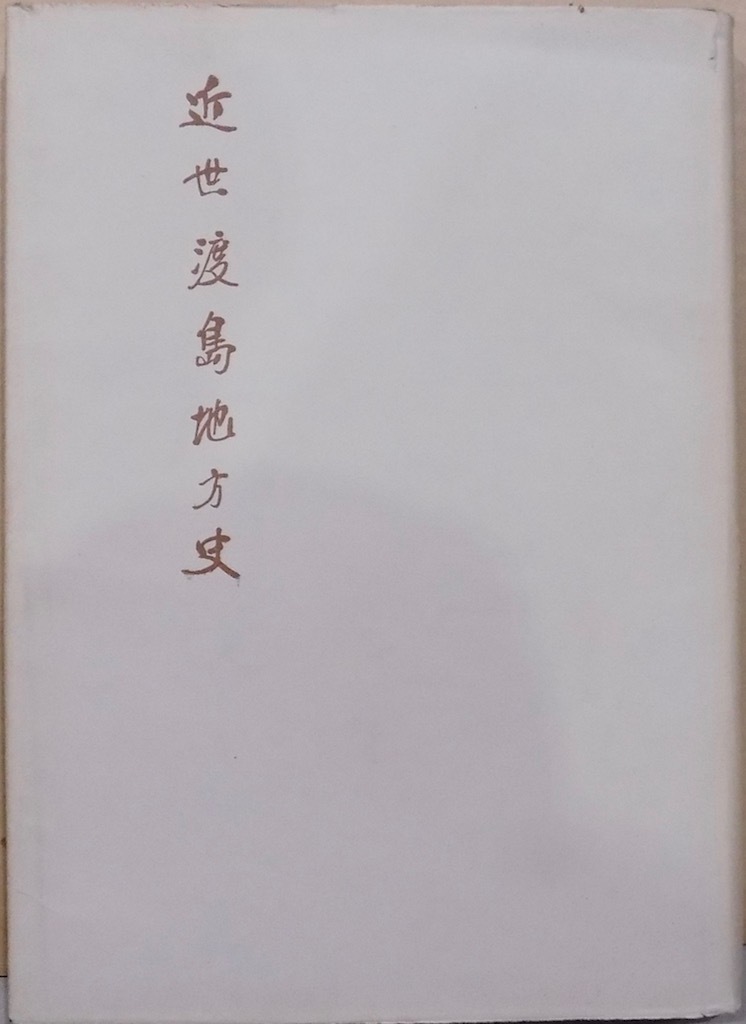 近世渡島地方史